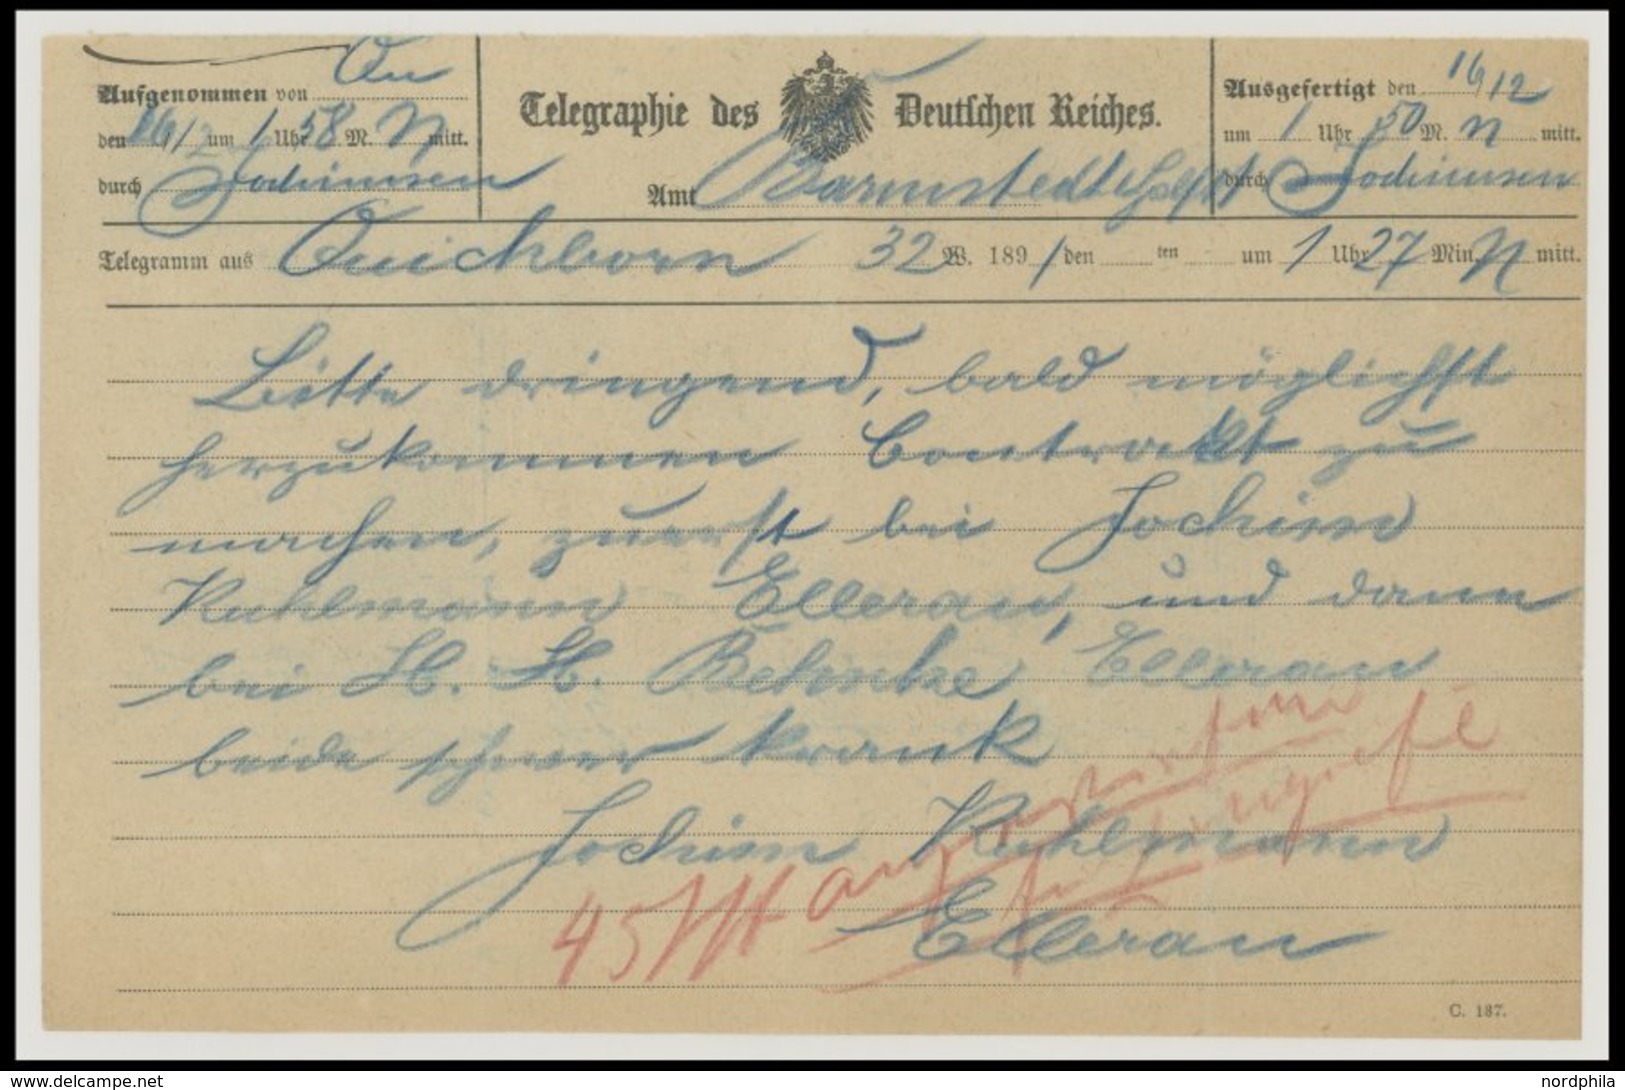 Aufgenommen von Qu
den 16/12 um 1 Uhr 58 M. N mitt.
durch Jochimsen
Telegraphie des Deutschen Reiches.
Amt Barmstedt Holst
Ausgefertigt den 16/12
um 1 Uhr 50 M. N mitt.
durch Jochimsen
Telegramm aus Quickborn 32 W. 189 1 den ten um 1 Uhr 27 Min. N mitt.
Bitte dringend, bald möglichst
herzukommen Contrakt zu
machen, zuerst bei Jochim
Kuhlmann Ellerau, und dann
bei H. H. Behnke Ellerau
beide schwer krank
Jochim Kuhlmann
Ellerau
45
C. 187.
www.delcampe.net
nordphila